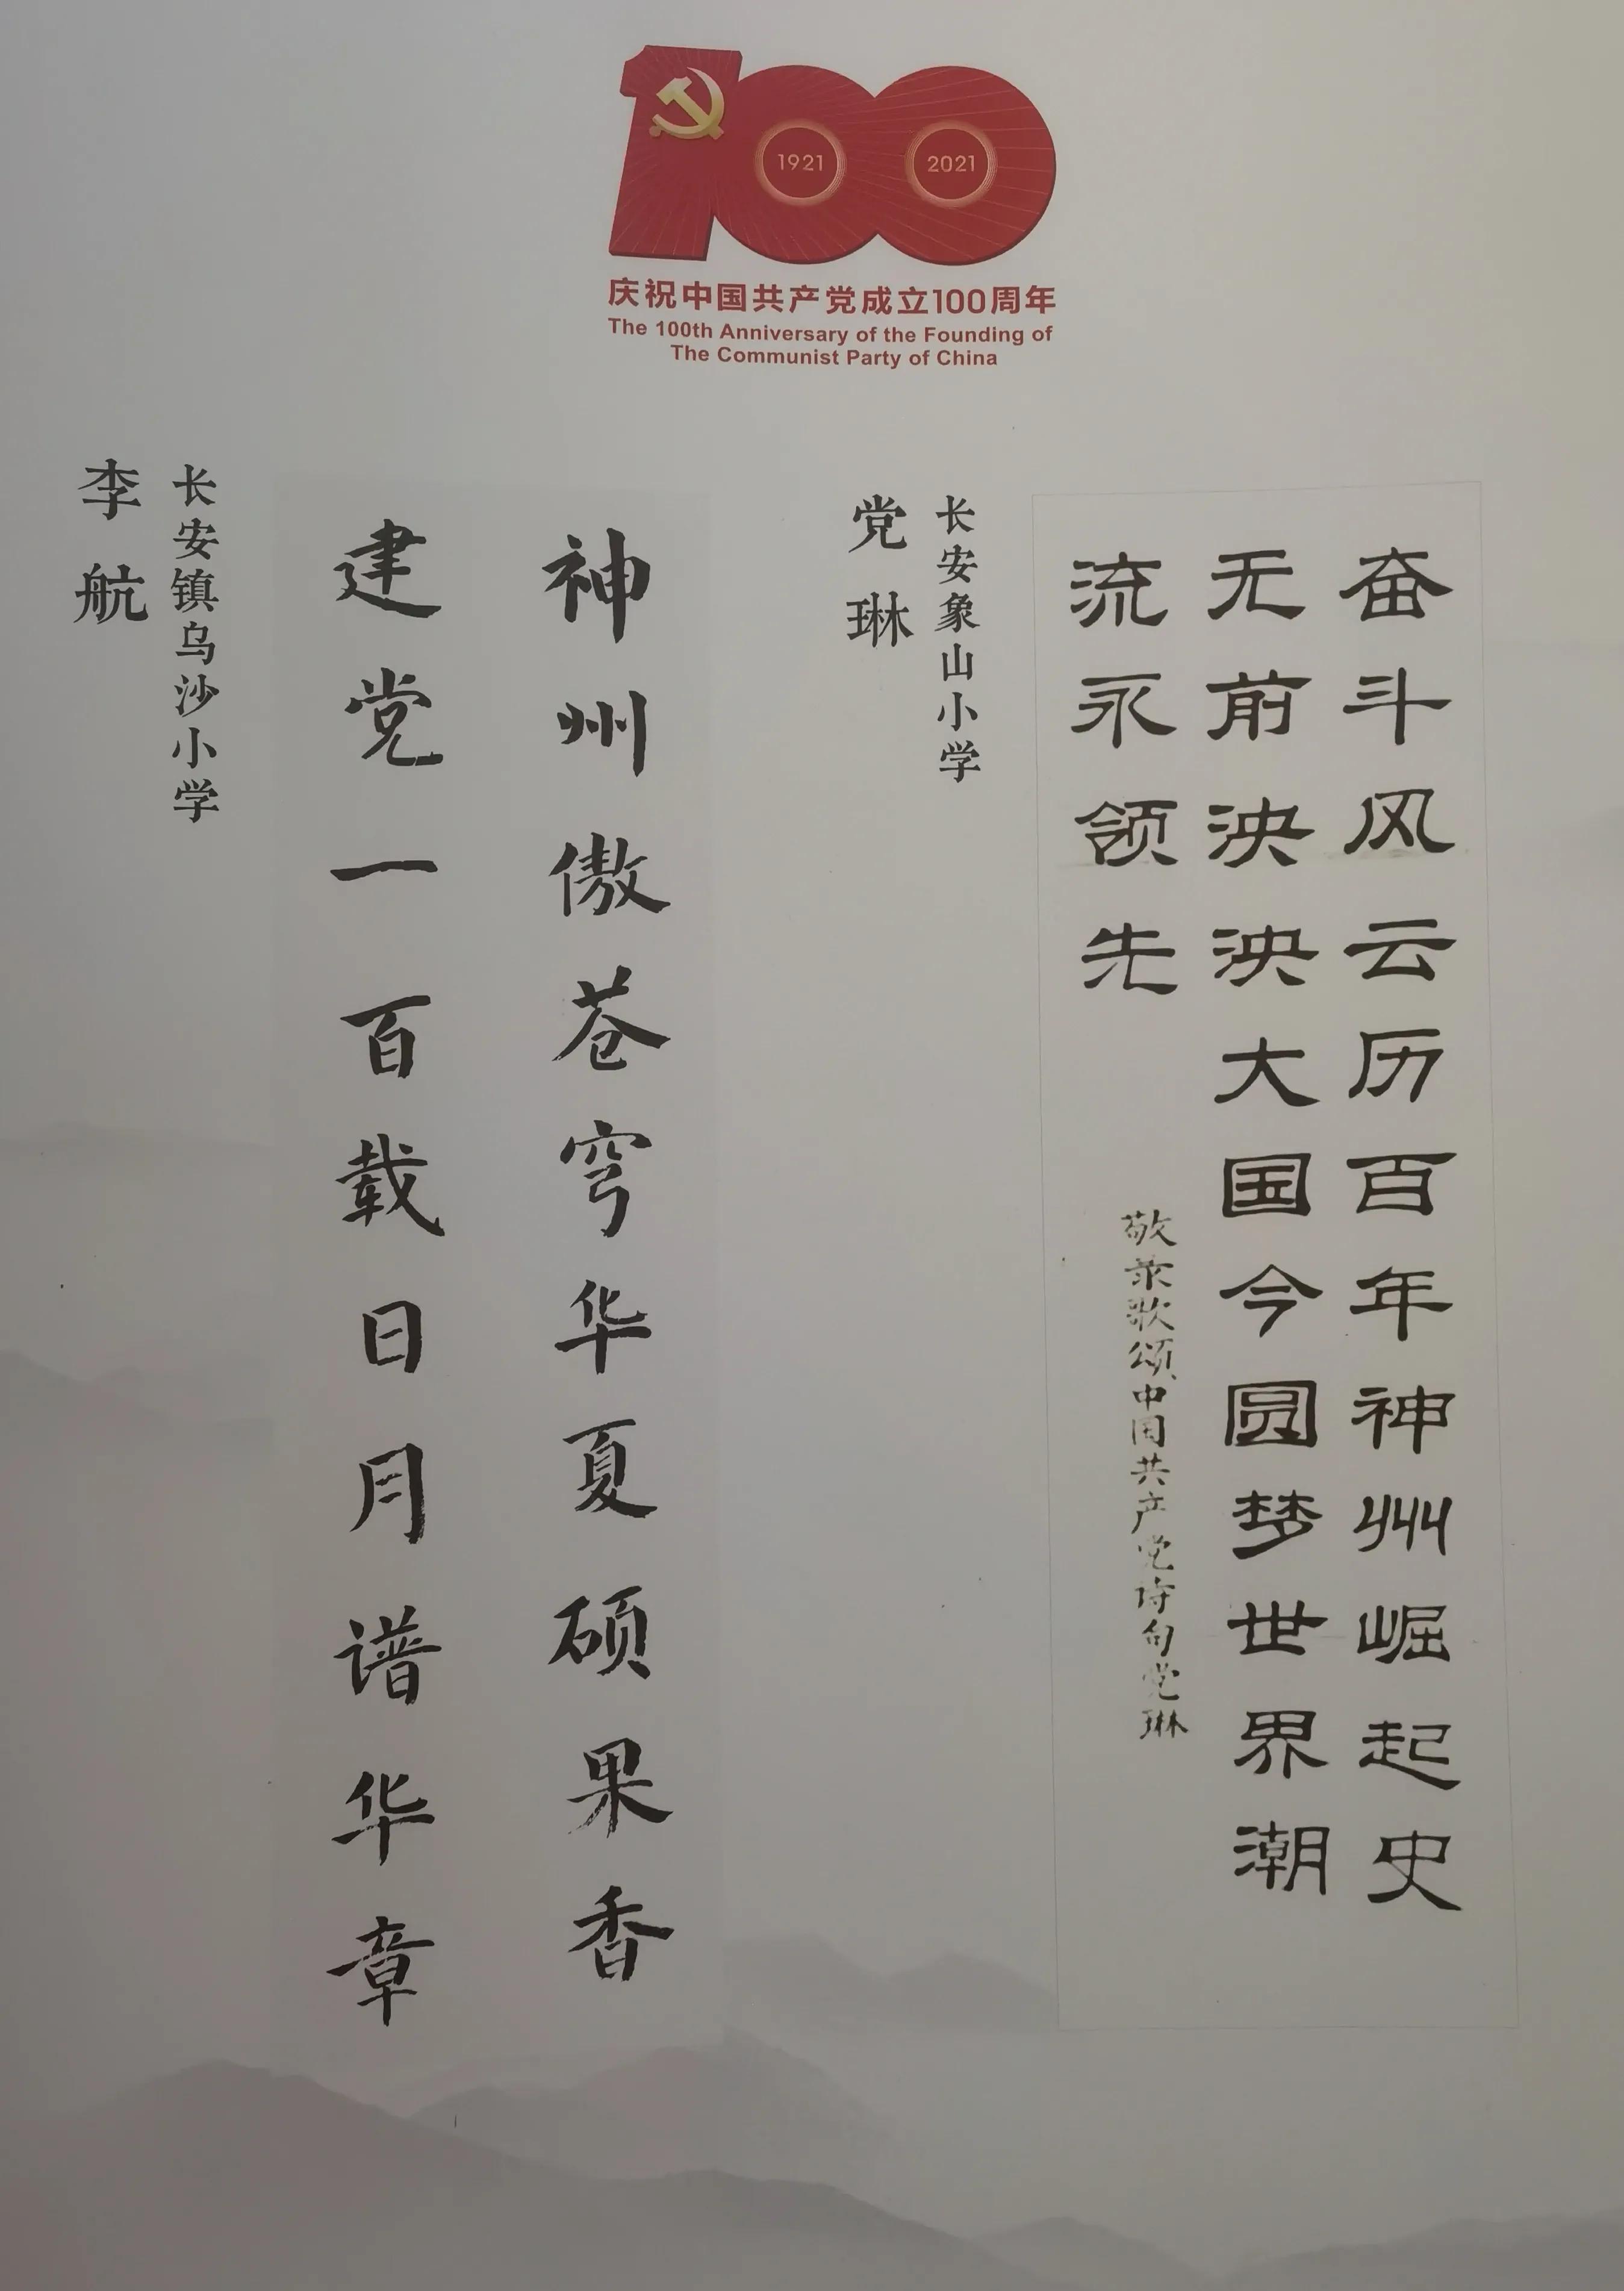 1921
2021
庆祝中国共产党成立100周年
The 100th Anniversary of the Founding of
The Communist Party of China
奋斗风云历百年神州崛起史
无前泱泱大国今圆梦世界潮
流永领先
敬录歌颂中国共产党诗句党琳
长安象山小学
党琳
神州傲苍穹华夏硕果香
建党一百载日月谱华章
长安镇乌沙小学
李航